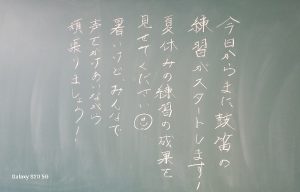 今日からまた鼓笛の
練習がスタートします!
夏休みの練習の成果を
見せてください
暑いけどみんなで
声をかけあいながら
頑張りましょう!
Galaxy S20 5G